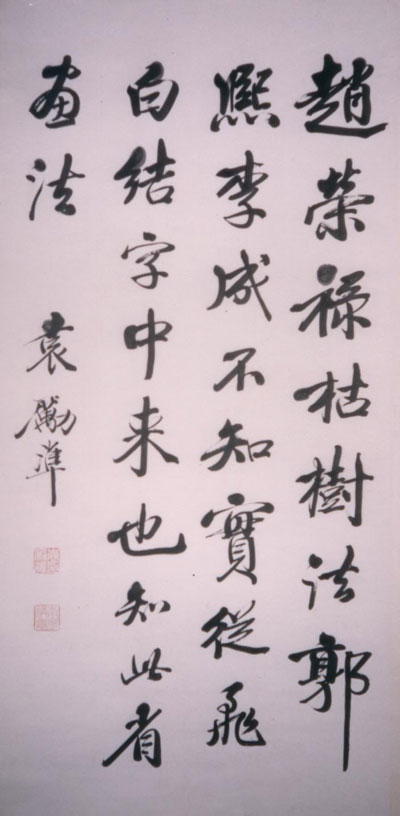 趙榮祿枯樹法郭
熙李成不知實從飛
白結字中来也知此省
畫法
袁勵準